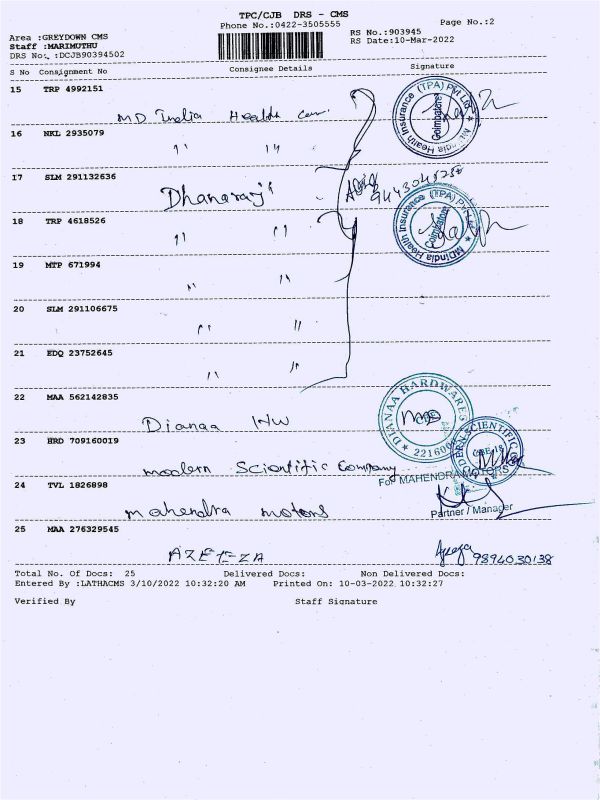 TPC/CJB DRS - CMS
Phone No.:0422-3505555
Page No.:2
Area :GREYDOWN CMS
RS No.:903945
Staff :MARIMUTHU
RS Date:10-Mar-2022
DRS No: :DCJB90394502
S No Consignment No Consignee Details Signature
15 TRP 4992151
MD India Health Care.
MDIndia Health Insurance (TPA) Pvt Ltd. ★ Coimbatore
16 NKL 2935079
" "
17 SLM 291132636
Dhanaraji
18 TRP 4618526
" "
MDIndia Health Insurance (TPA) Pvt Ltd. ★ Coimbatore
19 MTP 671994
" "
20 SLM 291106675
" "
21 EDQ 23752645
" "
22 MAA 562142835
Dianaa HW
DIANAA HARDWARES
23 HRD 709160019
modern Scientific Company
MODERN SCIENTIFIC
24 TVL 1826898
For MAHENDRA MOTORS
mahendra motors
Partner / Manager
25 MAA 276329545
9894030138
Total No. Of Docs: 25 Delivered Docs: Non Delivered Docs:
Entered By :LATHACMS 3/10/2022 10:32:20 AM Printed On: 10-03-2022 10:32:27
Verified By Staff Signature